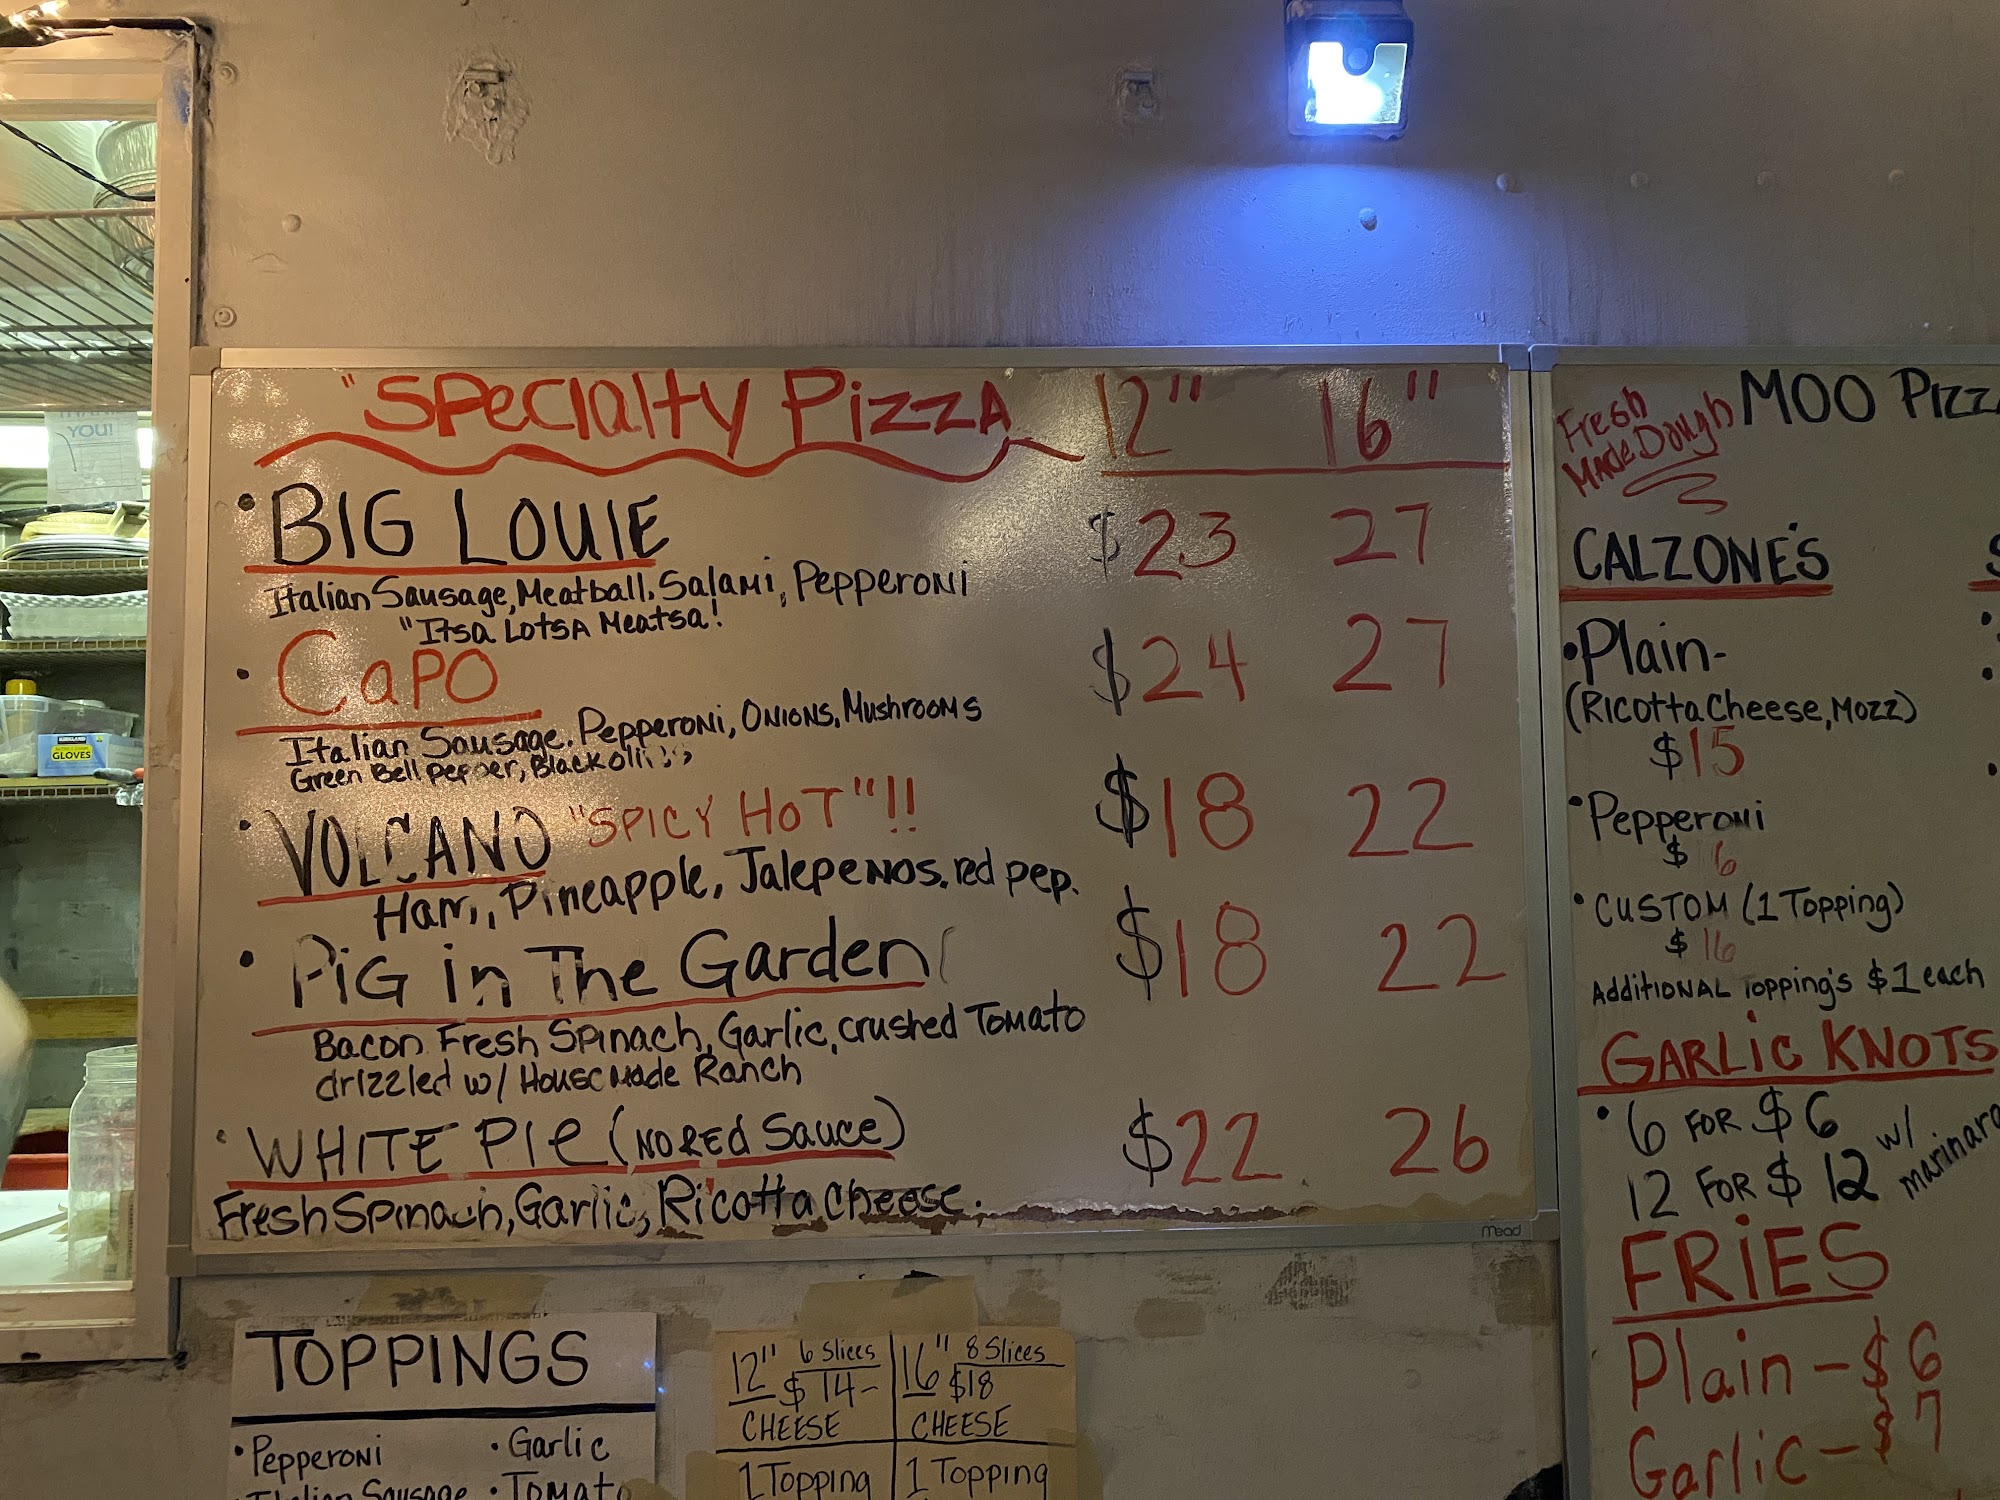 "Specialty Pizza 12" 16"
• BIG LOUIE $23 27
Italian Sausage, Meatball, Salami, Pepperoni
"Itsa Lotsa Meatsa!
• CaPO $24 27
Italian Sausage, Pepperoni, Onions, Mushrooms
Green Bell pepper, Black
• VOLCANO "SPICY HOT"!! $18 22
Ham, Pineapple, Jalepenos, red pep.
• PiG in The Garden $18 22
Bacon Fresh Spinach, Garlic, crushed Tomato
drizzled w/ House made Ranch
• WHITE PIE (NO RED Sauce) $22 26
Fresh Spinach, Garlic, Ricotta Cheese.
Mead
Fresh
Made Dough
MOO PIZZ
CALZONE'S
• Plain-
(Ricotta Cheese, Mozz)
$15
• Pepperoni
$ 6
• CUSTOM (1 Topping)
$ 16
Additional Topping's $1 each
GARLIC KNOTS
• 6 FOR $6
12 FOR $12 w/
marinara
FRIES
Plain - $6
Garlic - $7
TOPPINGS
• Pepperoni • Garlic
Italian Sausage • Tomato
12" 6 Slices
$14-
CHEESE
1 Topping
16" 8 Slices
$18
CHEESE
1 Topping
YOU!
KIRKLAND
GLOVES